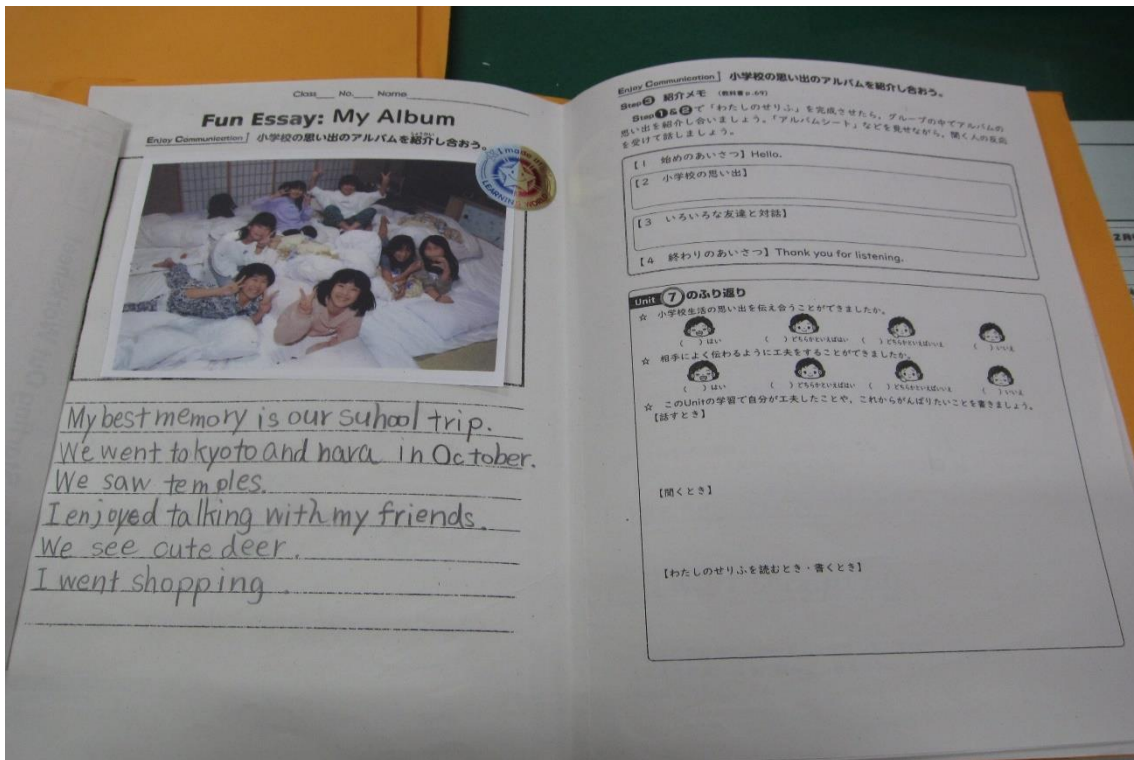 Class No. Name
Fun Essay: My Album
Enjoy Communication 小学校の思い出のアルバムを紹介し合おう。
I made it!
LEARNING WORLD
My best memory is our suhool trip.
We went to kyoto and nara in October.
We saw temples.
I enjoyed talking with my friends.
We see cute deer.
I went shopping.
Enjoy Communication 小学校の思い出のアルバムを紹介し合おう。
Step 3 紹介メモ (教科書p.69)
Step 1 & 2 で「わたしのせりふ」を完成させたら、グループの中でアルバムの
思い出を紹介し合いましょう。「アルバムシート」などを見せながら、聞く人の反応
を受けて話しましょう。
【1 始めのあいさつ】Hello.
【2 小学校の思い出】
【3 いろいろな友達と対話】
【4 終わりのあいさつ】Thank you for listening.
Unit 7 のふり返り
☆ 小学校生活の思い出を伝え合うことができましたか。
( )はい ( )どちらかといえばはい ( )どちらかといえばいいえ ( )いいえ
☆ 相手によく伝わるように工夫をすることができましたか。
( )はい ( )どちらかといえばはい ( )どちらかといえばいいえ ( )いいえ
☆ このUnitの学習で自分が工夫したことや、これからがんばりたいことを書きましょう。
【話すとき】
【聞くとき】
【わたしのせりふを読むとき・書くとき】